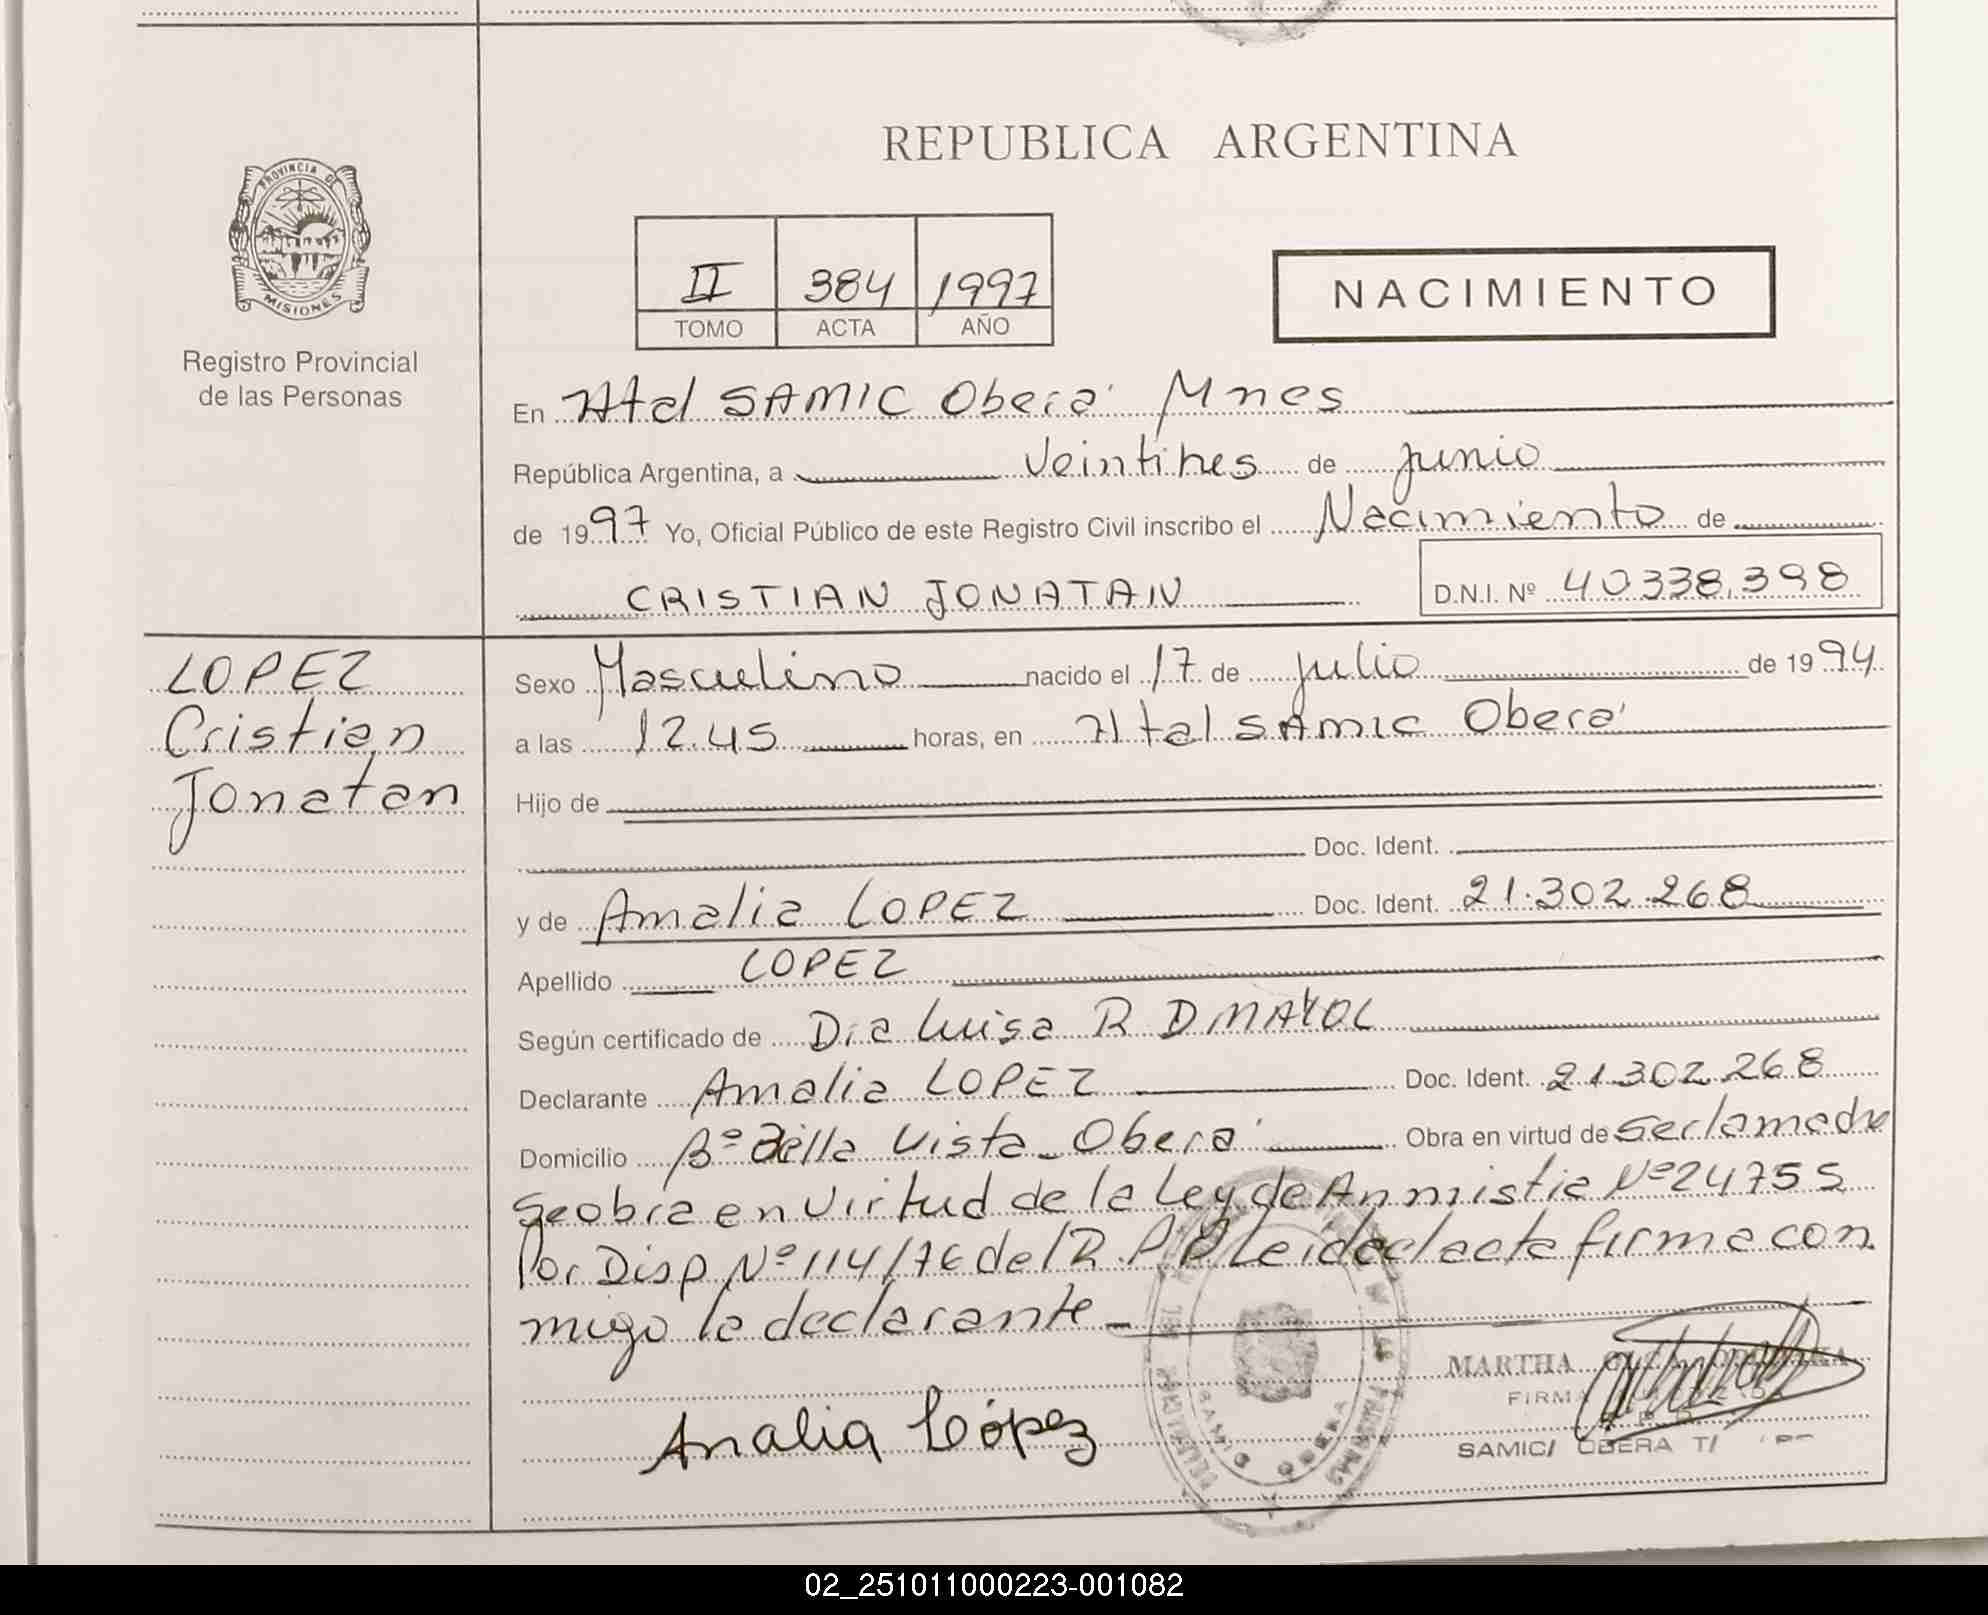 REPUBLICA ARGENTINA
PROVINCIA DE
MISIONES
Registro Provincial
de las Personas
II 384 1997
TOMO ACTA AÑO
NACIMIENTO
En Htal SAMIC Oberá Mnes
República Argentina, a veintitres de junio
de 1997 Yo, Oficial Público de este Registro Civil inscribo el Nacimiento de
CRISTIAN JONATAN D.N.I. Nº 40338.398
LOPEZ
Cristian
Jonatan
Sexo Masculino nacido el 17 de julio de 1994
a las 12.45 horas, en Htal SAMIC Oberá
Hijo de
Doc. Ident.
y de Amalia LOPEZ Doc. Ident. 21.302.268
Apellido LOPEZ
Según certificado de Dra Luisa R D MAYOL
Declarante Amalia LOPEZ Doc. Ident. 21.302.268
Domicilio Bº Bella Vista - Oberá Obra en virtud de ser la madre
Se obra en virtud de la Ley de Anmistia Nº 24755
Por Disp Nº 114/76 del R.P.P Leida el acta firma con
migo la declarante -
Analia López
MARTHA
FIRMA
SAMIC/ OBERA
SAMIC OBERA
02_251011000223-001082